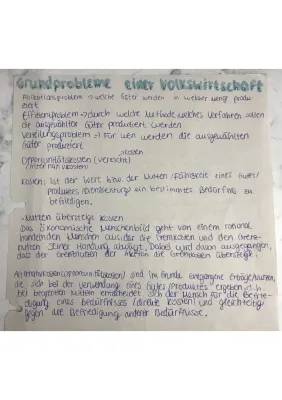 Grundprobleme einer Volkswirtschaft
Allokationsproblem → welche Güter werden in welcher Menge produ-
ziert
Effizienzproblem → durch welche Methode/welches Verfahren sollen
die ausgewählten Güter produziert werden
Verteilungsproblem → Für wen werden die ausgewählten
Güter produziert
Opportunitätskosten (Verzicht)
Kosten: Ist der Wert bzw. der Nutzen (Fähigkeit eines Gutes/
Produktes/Dienstleistung ein bestimmtes Bedürfnis zu
befriedigen.
- Nutzen übersteigt Kosten
Das ökonomische Menschenbild geht von einem rational
handelnden Menschen aus, der die Grenzkosten und den Grenz-
nutzen seiner Handlung abwägt. Dabei wird davon ausgegangen,
dass der Grenznutzen der Aktion die Grenzkosten übersteigt.
Alternativkosten (Opportunitätskosten) sind im Grunde entgangene Erträge/Nutzen,
die sich bei der Verwendung eines Gutes/Produktes ergeben d.h.
bei begrenzten Mitteln entscheidet sich der Mensch für die Befrie-
digung eines Bedürfnisses (direkte Kosten) und gleichzeitig
gegen die Befriedigung anderer Bedürfnisse.